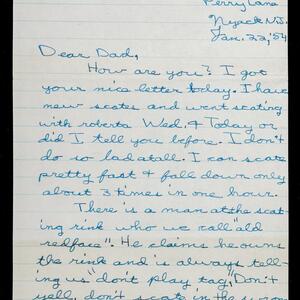 Perry Lane
Nyack N.J.
Jan. 22, '54
Dear Dad,
How are you? I got
your nice letter today. I have
new scates and went scating
with roberta Wed. & Today or
did I tell you before. I don't
do so bad atall. I can scate
pretty fast & fall down only
about 3 times in one hour.
There is a man at the scat-
ing rink who we call "ald
redface". He claims he owns
the rink and is always tell-
ing us "don't play tag", "Don't
yell, don't scate in the